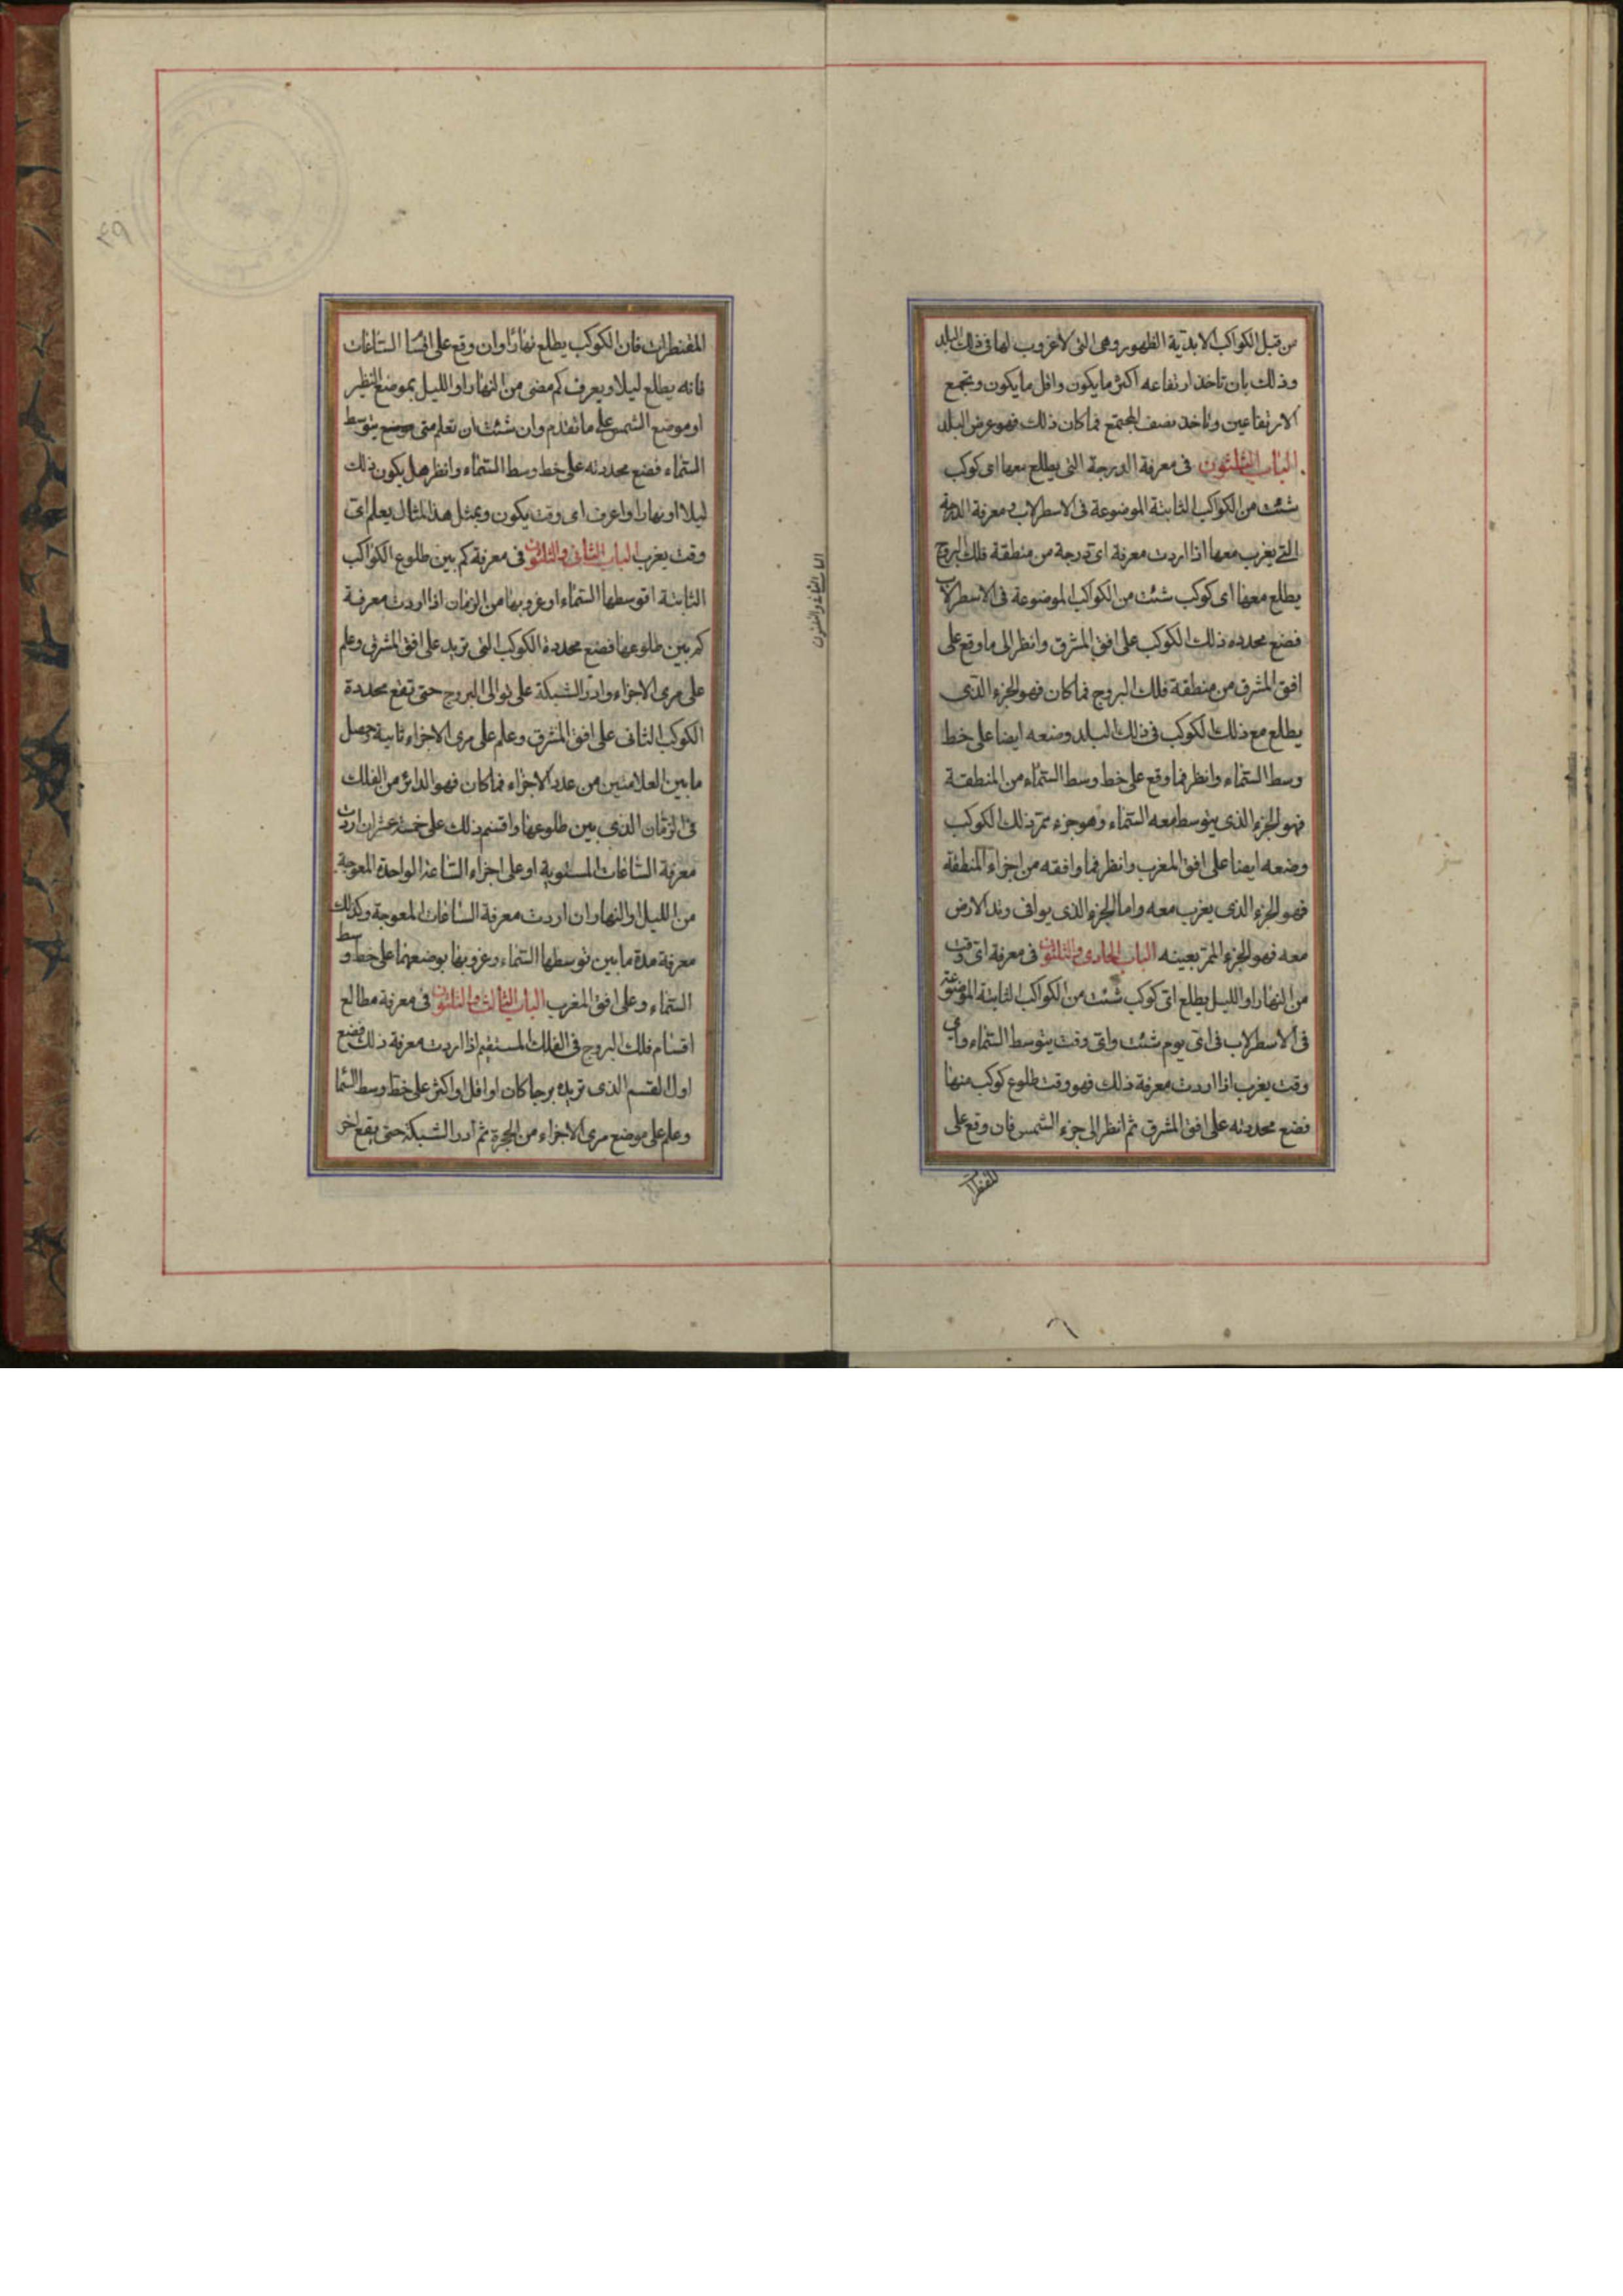 من قبل الكواكب الابدية الظهور وهى التى لا غروب لها فى ذلك البلد
وذلك بان تاخذ ارتفاعه اكثر ما يكون واقل ما يكون وتجمع
الارتفاعين وتاخذ نصف المجتمع فما كان ذلك فهو عرض البلد
الباب الثلثون فى معرفة الدرجة التى يطلع معها اى كوكب
شئت من الكواكب الثابتة الموضوعة فى الاسطرلاب ومعرفة الدرجة
التى يغرب معها اذا اردت معرفة اى درجة من منطقة فلك البروج
يطلع معها اى كوكب شئت من الكواكب الموضوعة فى الاسطرلاب
فضع محدده ذلك الكوكب على افق المشرق وانظر الى ما وقع على
افق المشرق من منطقة فلك البروج فما كان فهو الجزء الذى
يطلع مع ذلك الكوكب فى ذلك البلد وضعه ايضا على خط
وسط السماء وانظر فما وقع على خط وسط السماء من المنطقة
فهو الجزء الذى يتوسط معه السماء وهو جزء ممر ذلك الكوكب
وضعه ايضا على افق المغرب وانظر فما وافقه من اجزاء المنطقة
فهو الجزء الذى يغرب معه واما الجزء الذى يوافى وتد الارض
معه فهو الجزء الممر بعينه الباب الحادى والثلثون فى معرفة اى وقت
من النهار او الليل يطلع اى كوكب شئت من الكواكب الثابتة الموضوعة
فى الاسطرلاب فى اى يوم شئت واى وقت يتوسط السماء واى
وقت يغرب اذا اردت معرفة ذلك فهو وقت طلوع كوكب منها
فضع محددته على افق المشرق ثم انظر الى جزء الشمس فان وقع على
المقنطرات
المقنطرات فان الكوكب يطلع نهارا وان وقع على اقسا الساعات
فانه يطلع ليلا ويعرف كم مضى من النهار او الليل بموضع النظير
او موضع الشمس على ما تقدم وان شئت ان تعلم متى موضع يتوسط
السماء فضع محددته على خط وسط السماء وانظر هل يكون ذلك
ليلا او نهارا واعرف اى وقت يكون وبمثل هذا المثال يعلم اى
وقت يغرب الباب الثانى والثلثون فى معرفة كم بين طلوع الكواكب
الثابتة او توسطها السماء او غروبها من الزمان اذا اردت معرفة
كم بين طلوعها فضع محددة الكوكب التى تريد على افق المشرق وعلم
على مرى الاجزاء وادر الشبكة على توالى البروج حتى تقع محددة
الكوكب الثانى على افق المشرق وعلم على مرى الاجزاء ثانية وحصل
ما بين العلامتين من عدد الاجزاء فما كان فهو الدائر من الفلك
فى الزمان الذى بين طلوعها واقسم ذلك على خمسة عشر ان اردت
معرفة الساعات المستوية او على اجزاء الساعة الواحدة المعوجة
من الليل او النهار ان اردت معرفة الساعات المعوجة وكذلك
معرفة مدة ما بين توسطها السماء وغروبها بوضعهما على خط وسط
السماء وعلى افق المغرب الباب الثالث والثلثون فى معرفة مطالع
اقسام فلك البروج فى الفلك المستقيم اذا اردت معرفة ذلك فضع
اول القسم الذى تريد برجا كان او اقل او اكثر على خط وسط السما
وعلم على موضع مرى الاجزاء من الحجرة ثم ادر الشبكة حتى يقع اخر
الباب الثانى والثلثون
٤٩